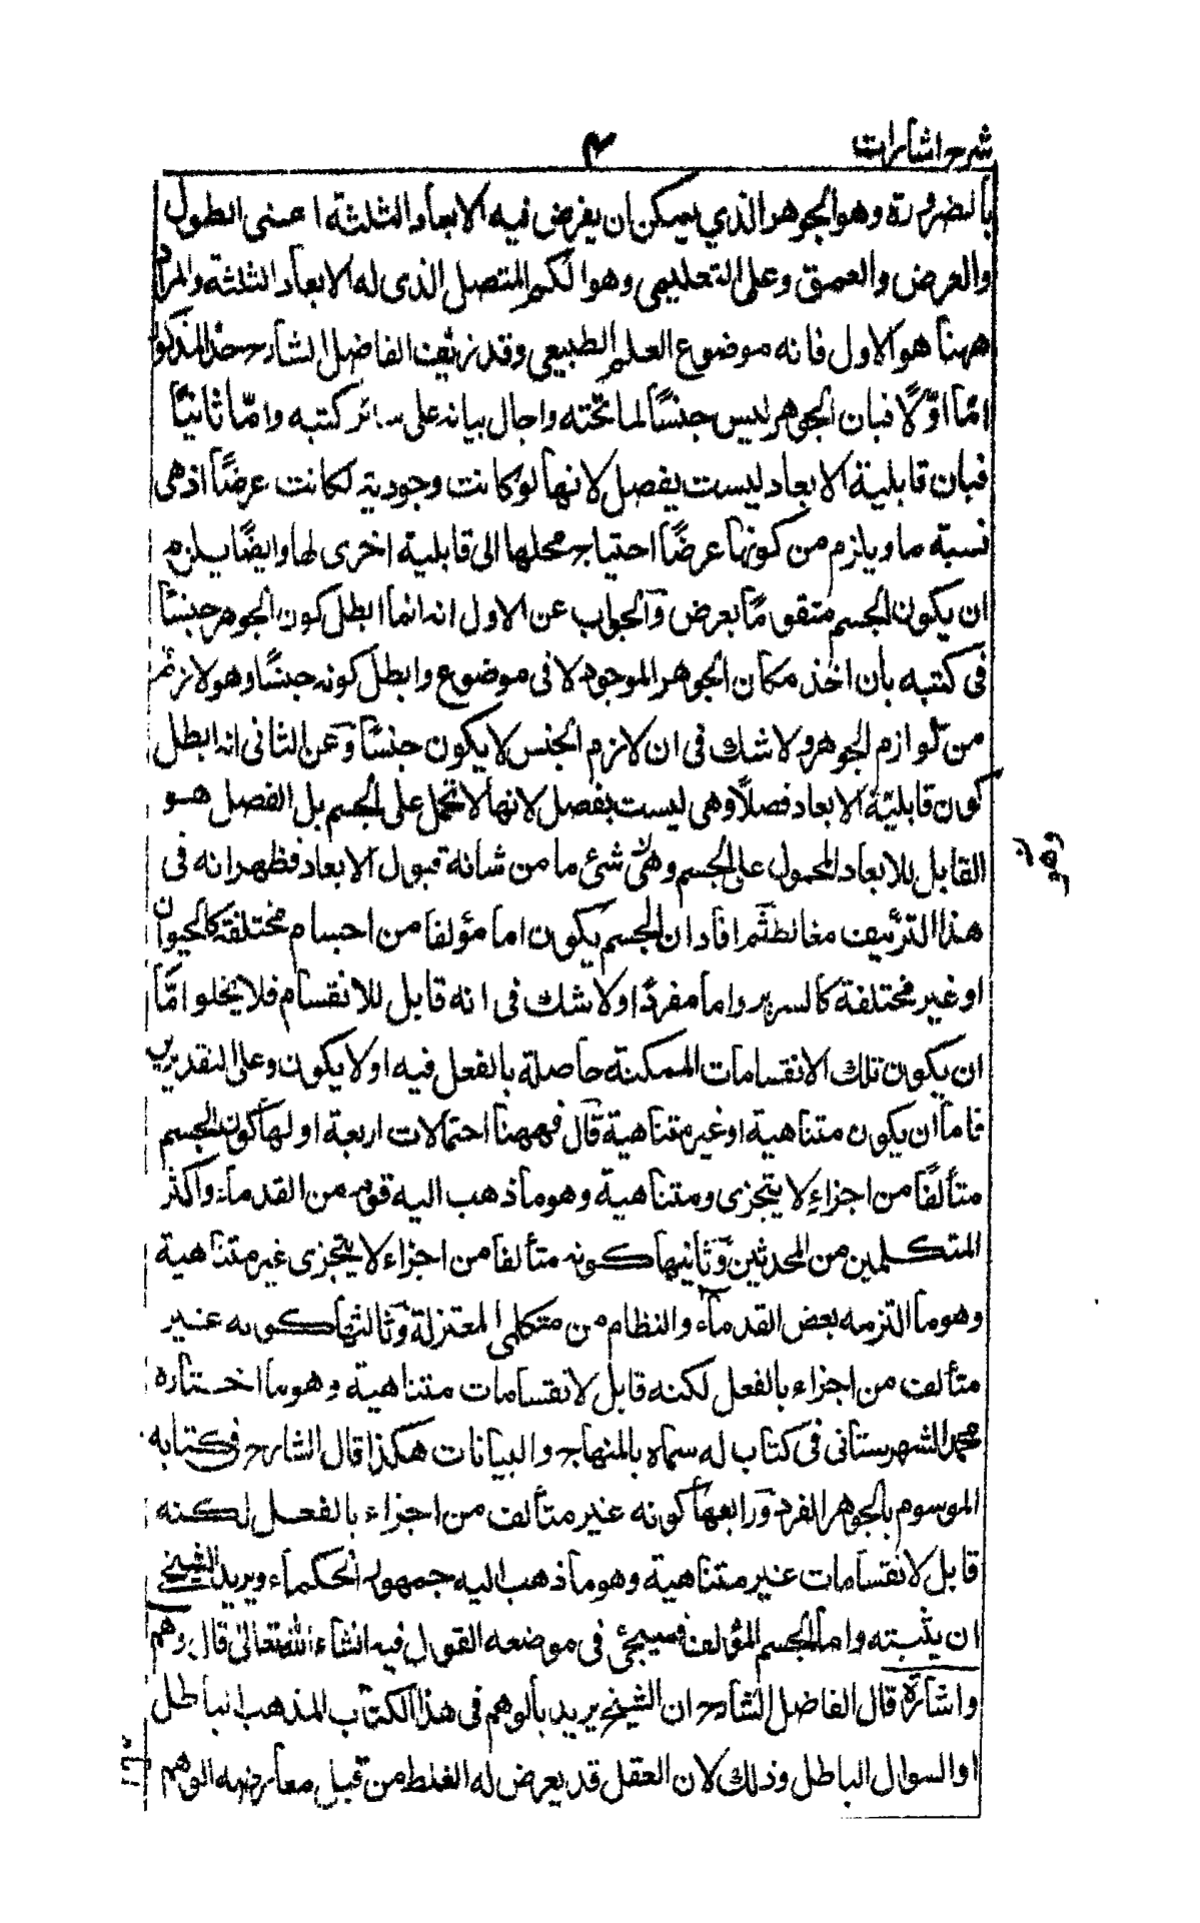 شرح اشارات
۴
بالضرورة وهو الجوهر الذي يمكن ان يفرض فيه الابعاد الثلثة اعنى الطول
والعرض والعمق وعلى التعليمى وهو الكم المتصل الذى له الابعاد الثلثة والمراد
ههنا هو الاول فانه موضوع العلم الطبيعى وقد زيف الفاضل الشارح حد المذكور
امّا اوّلاً فبان الجوهر ليس جنسًا لما تحته واحال بيانه على سائر كتبه وامّا ثانيًا
فبان قابلية الابعاد ليست بفصل لانها لو كانت وجودية لكانت عرضًا اذ هى
نسبة ما ويلزم من كونها عرضًا احتياج محلها الى قابلية اخرى لها وايضًا يلزم
ان يكون الجسم متقومًا بعرض والجواب عن الاول انه انما ابطل كون الجوهر جنسًا
فى كتبه بان اخذ مكان الجوهر الموجود لا فى موضوع وابطل كونه جنسًا وهو لازم
من لوازم الجوهر ولا شك فى ان لازم الجنس لا يكون جنسًا وعن الثانى انه ابطل
كون قابليّة الابعاد فصلًا وهى ليست بفصل لانها لا تحمل على الجسم بل الفصل هو
القابل للابعاد المحمول على الجسم وهى شئ ما من شانه قبول الابعاد فظهر انه فى
هذا التزييف مغالط ثم افاد ان الجسم يكون اما مؤلفا من اجسام مختلفة كالحيوان
او غير مختلفة كالسرير واما مفردًا ولا شك فى انه قابل للانقسام فلا يخلو امّا
ان يكون تلك الانقسامات الممكنة حاصلة بالفعل فيه او لا يكون وعلى التقديرين
فاما ان يكون متناهية او غير متناهية قال فههنا احتمالات اربعة اولها كون الجسم
متألفًا من اجزاءٍ لا يتجزى ومتناهية وهو ما ذهب اليه قوم من القدماء واكثر
المتكلمين من المحدثين وثانيها كونه متألفا من اجزاء لا يتجزى غير متناهية
وهو ما التزمه بعض القدماء والنظام من متكلمى المعتزلة وثالثها كونه غير
متألف من اجزاء بالفعل لكنه قابل لانقسامات متناهية وهو ما اختاره
محمد الشهرستانى فى كتاب له سماه بالمنهاج والبيانات هكذا قال الشارح فى كتابه
الموسوم بالجوهر الفرد ورابعها كونه غير متألف من اجزاء بالفعل لكنه
قابل لانقسامات غير متناهية وهو ما ذهب اليه جمهور الحكماء ويريد الشيخ
ان يثبته واما الجسم المؤلف فسيجئ فى موضعه القول فيه انشاء الله تعالى قال وهم
واشارة قال الفاضل الشارح ان الشيخ يريد بالوهم فى هذا الكتاب المذهب الباطل
او السوال الباطل وذلك لان العقل قد يعرض له الغلط من قبل معارضة الوهم